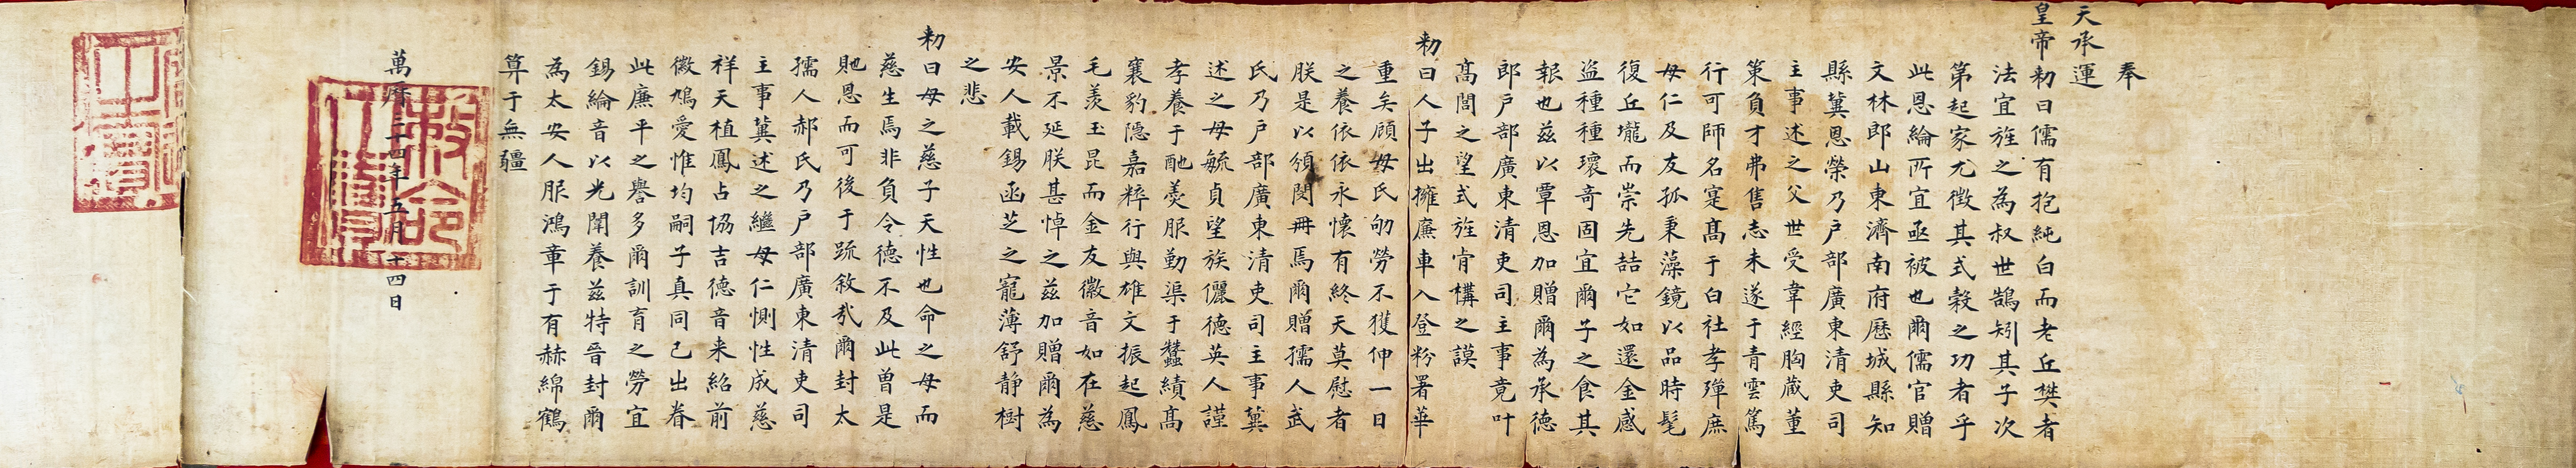 奉
天承運
皇帝勑曰儒有抱純白而老丘樊者
法宜旌之為叔世鵠矧其子次
第起家尤徵其式穀之功者乎
此恩綸所宜亟被也爾儒官贈
文林郎山東濟南府歷城縣知
縣冀恩榮乃戶部廣東清吏司
主事述之父世受韋經胸蔵董
策負才弗售志未遂于青雲篤
行可師名寔髙于白社孝殫庶
母仁及友孤秉藻鏡以品時髦
復丘壠而崇先喆它如還金感
盗種種瓌奇固宜爾子之食其
報也兹以覃恩加贈爾為承德
郎戶部廣東清吏司主事竟叶
髙閭之望式旌肯構之謨
勑曰人子出擁廉車入登粉署華
重矣顧母氏劬勞不獲伸一日
之養依依永懷有終天莫慰者
朕是以頒閔冊焉爾贈孺人武
氏乃戶部廣東清吏司主事冀
述之母毓貞望族儷德英人謹
孝養于酏羮服勤渠于蠶績髙
襄豹隱嘉粹行與雄文振起鳳
毛羨玉昆而金友徽音如在慈
景不延朕甚悼之兹加贈爾為
安人載錫函芝之寵薄舒静樹
之悲
勑曰母之慈子天性也命之母而
慈生焉非負令德不及此曽是
貤恩而可後于䟽敘㢤爾封太
孺人郝氏乃戶部廣東清吏司
主事冀述之繼母仁惻性成慈
祥天植鳳占協吉德音来紹前
徽鳩愛惟均嗣子真同己出眷
此廉平之譽多爾訓育之勞宜
錫綸音以光闈養兹特晉封爾
為太安人服鴻章于有赫綿鶴
算于無疆
萬曆三十四年五月十四日
敕命之寶
之寶